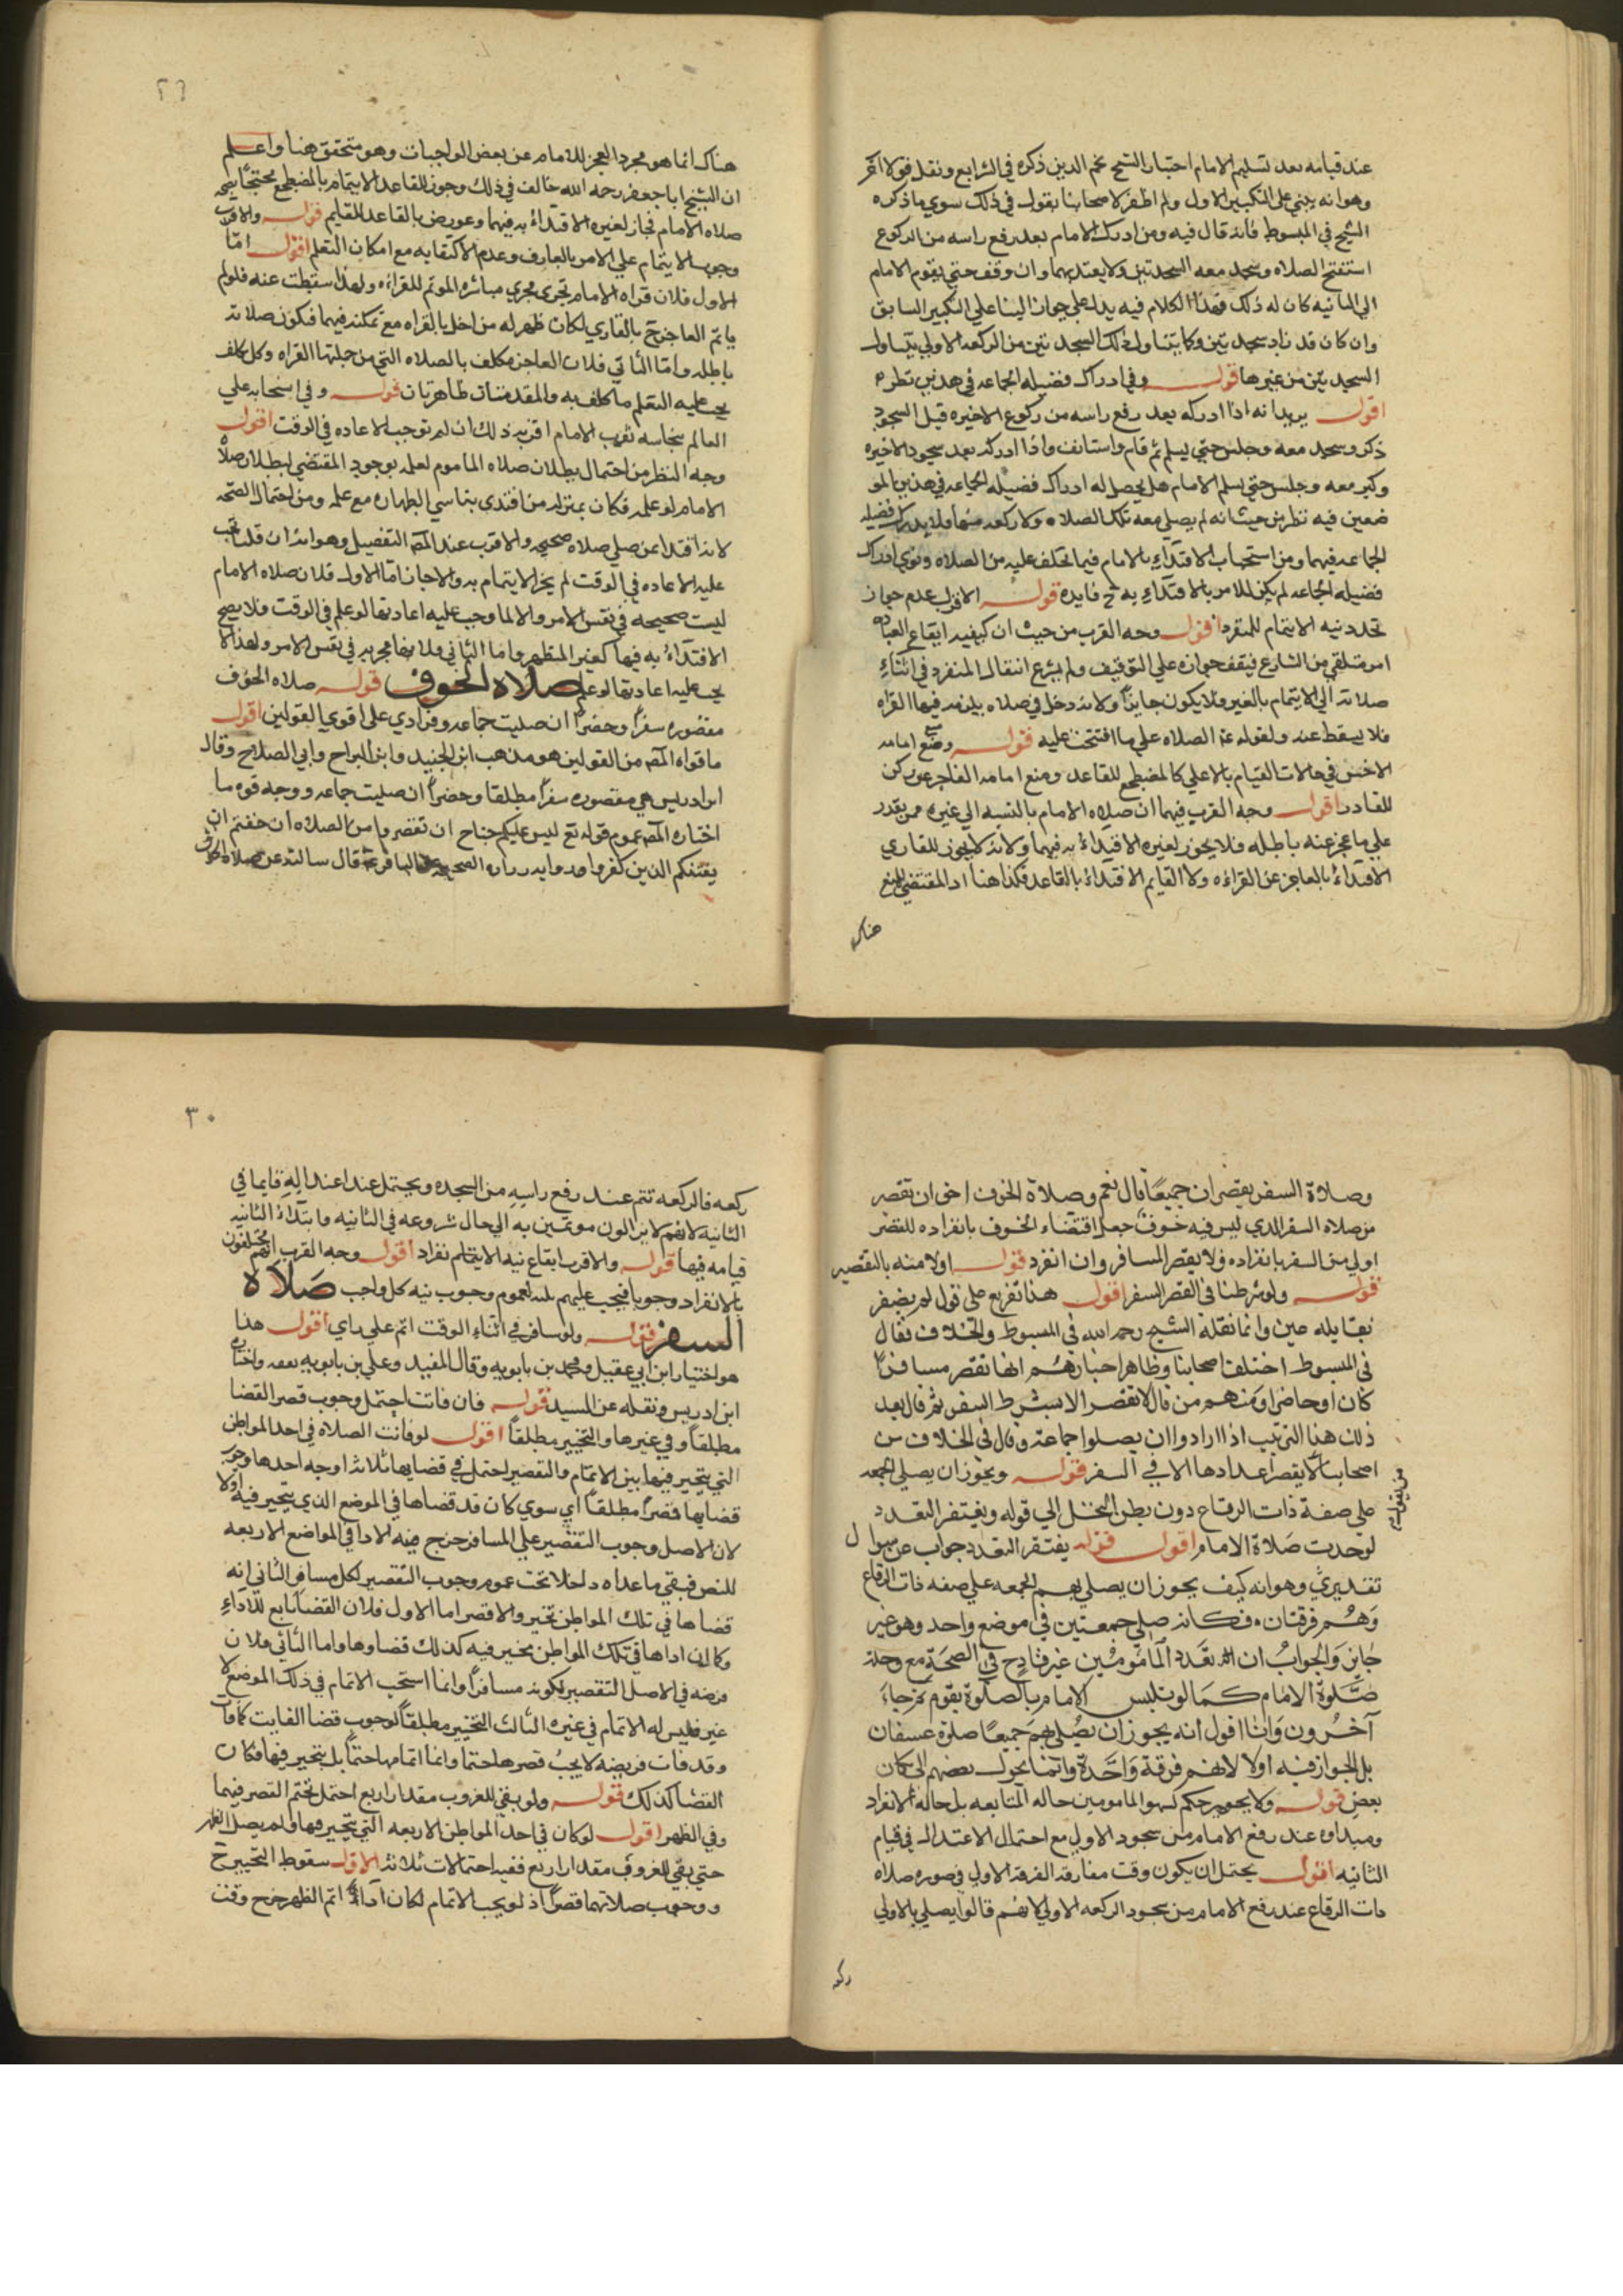 عند قيامه بعد تسليم الامام اختيار الشيخ نجم الدين ذكره في الشرايع ونقل قولا اخر
وهو انه يبني على التكبير الاول ولم اظفر لاصحابنا بقول في ذلك سوي ما ذكره
الشيخ في المبسوط فانه قال فيه ومن ادرك الامام بعد رفع راسه من الركوع
استفتح الصلاه وسجد معه السجدتين ولا يعتد بهما وان وقف حتي يقوم الامام
الي الثانيه كان له ذلك فهذا الكلام فيه يدل علي جواز البنا علي التكبير السابق
وان كان قد زاد سجدتين وكا يتناول ذلك السجدتين من الركعه الاولي يتناول
السجدتين من غيرها قوله وفي ادراك فضيله الجماعه في هذين نظر
اقول يريد انه اذا ادركه بعد رفع راسه من ركوع الاخيره قبل السجود
ذكر وسجد معه وجلس حتي يسلم ثم قام واستانف واذا ادركه بعد سجود الاخيره
وكبر معه وجلس حتي يسلم الامام هل يحصل له ادراك فضيله الجماعه في هذين المو
ضعين فيه نظر من حيث انه لم يصلي معه تلك الصلاه ولا ركعه منها فلا يدرك فضيله
الجماعه فيهما ومن استحباب الاقتداء بالامام فيما تخلف عليه من الصلاه ونوي ادراك
فضيله الجماعه لم يكن للامر بالاقتداء به ح فايده قوله الاقرب عدم جواز
تجدد نيه الايتمام للمنفرد اقول وجه القرب من حيث ان كيفيه ايقاع العباده
امر متلقي من الشارع فيقف جوازه علي التوقيف ولم يشرع انتقال المنفرد في اثناء
صلاته الي الايتمام بالغير فلا يكون جايزا ولانه دخل في صلاه يلزمه فيها القراه
فلا يسقط عنه ولقوله ع الصلاه علي ما افتتحت عليه قوله ومنع امامه
الاخس في حالات القيام بالاعلي كالمضطجع للقاعد ومنع امامه العاجز عن ركن
للقادر اقول وجه القرب فيهما ان صلاه الامام بالنسبه الي غيره ممن يقدر
علي ما عجز عنه باطله فلا يجوز لغيره الاقتداء به فيهما ولانه لا يجوز للقاري
الاقتداء بالعاجز عن القراءه ولا القايم الاقتداء بالقاعد فكذا هنا اذ المقتضي للمنع
هناك
٢٩
هناك انما هو مجرد العجز للامام عن بعض الواجبات وهو متحقق هنا واعلم
ان الشيخ ابا جعفر رحمه الله خالف في ذلك وجوز للقاعد الايتمام بالمضطجع محتجا بصحه
صلاه الامام فجاز لغيره الاقتداء به فيهما وعورض بالقاعد للقايم قوله والاقرب
وجوب الايتمام علي الامر بالعارف وعدم الاكتفا به مع امكان التعلم اقول امّا
الاول فلان قراه الامام تجري مجري مباشره الموتم للقراءه ولهذا سقطت عنه فلو لم
ياتم العاجز ح بالقاري لكان ظهر له من اخل بالقراه مع تمكنه فيها فكون صلاته
باطله وامّا الثاني فلان العاجز مكلف بالصلاه التي من جملتها القراه وكل مكلف
يجب عليه التعلم ما كلف به والمقدمتان ظاهرتان قوله وفي استحبابه علي
العالم بنجاسه ثوب الامام اقربه ذلك ان لم توجب الاعاده في الوقت اقول
وجه النظر من احتمال بطلان صلاه الماموم لعلمه بوجود المقتضي لبطلان صلاه
الامام لو علمه فكان بمنزله من اقتدي بناسي الطهاره مع علمه ومن احتمال الصحه
لانه اقتداء بمن صلي صلاه صحيحه والاقرب عند المص التفصيل وهو انه ان قلنا تجب
عليه الاعاده في الوقت لم يجز الايتمام به والا جاز امّا الاول فلان صلاه الامام
ليست صحيحه في نفس الامر والا لما وجب عليه اعادتها لو علم في الوقت فلا يصح
الاقتداء به فيها كغير المتطهر واما الثاني فلانها مجزيه في نفس الامر ولهذا لا
يجب عليه اعادتها لو علم صلاه الخوف قوله صلاه الخوف
مقصوره سفراً وحضراً ان صليت جماعه وفرادي علي اقوي القولين اقول
ما قواه المص من القولين هو مذهب ابن الجنيد وابن البراج وابي الصلاح وقال
ابن ادريس هي مقصوره سفراً مطلقا وحضراً ان صليت جماعه ووجه قوه ما
اختاره المص عموم قوله تع ليس عليكم جناح ان تقصروا من الصلاه ان خفتم ان
يفتنكم الذين كفروا وروايه زراره الصحيحه عن الباقر ع قال سالته عن صلاه الخوف
وصلاة السفر يقصران جميعا قال نعم وصلاة الخوف احق ان تقصر
من صلاه السفر الذي ليس فيه خوف جعل اقتضاء الخوف بانفراده للقصر
اولي من السفر بانفراده ولا يقصر المسافر وان انفرد قوله اولا منه بالتقصير
قوله ولو شرطنا في القصر السفر اقول هذا تفريع على قول لم يضفر
بقايله عين وانما نقله الشيخ رحمه الله في المبسوط والخلاف فقال
في المبسوط اختلف اصحابنا وظاهر اخبارهم انها تقصر مسافراً
كان او حاضرا ومنهم من قال لا تقصر الا بشرط السفر ثم قال بعد
ذلك هذا الترتيب اذا ارادوا ان يصلوا جماعة وقال في الخلاف من
اصحابنا لا يقصر اعدادها الا في السفر قوله ويجوز ان يصلي الجمعه
على صفة ذات الرقاع دون بطن النخل الي قوله ويغتفر التعدد
لوحدت صلاة الامام اقول قوله يغتفر التعدد جواب عن سوال
تقديري وهو انه كيف يجوز ان يصلي بهم الجمعه علي صفه ذات الرقاع
وهم فرقتان فكانه صلي جمعتين في موضع واحد وهو غير
جايز والجواب ان تعدد المأمومين غير قادح في الصحة مع وحدة
صلوة الامام كما لو تلبس الامام بالصلوة بقوم ثم جاء
آخرون وانا اقول انه يجوز ان يصلي بهم جميعا صلوة عسفان
بل الجواز فيه اولا لانهم فرقة واحدة وانما يحول بعضهم الي مكان
بعض قوله ولا يجوز حكم لسهو المامومين حاله المتابعه بل حاله الانفراد
ومبداوه عند رفع الامام من سجود الاول مع احتمال الاعتدال في قيام
الثانيه اقول يحتمل ان يكون وقت مفارقه الفرقه الاولي في صوره صلاه
ذات الرقاع عند رفع الامام من سجود الركعه الاولي لانهم قالوا يصلي بالاولي
ركعه
٣٠
ركعه فالركعه تتم عند رفع راسه من السجده ويحتمل عند اعتداله قايما في
الثانيه لانهم لا يزالون موتمين به الي حال شروعه في الثانيه وابتداء الثانيه
قيامه فيها قوله والاقرب ايقاع نيه الايتمام نفراد اقول وجه القرب انهم مكلفون
بالانفراد وجوبا فيجب عليهم بنيه لعموم وجوب نيه كل واجب صلاه
السفر قوله ولو سافر في اثناء الوقت اتم علي راي اقول هذا
هو اختيار ابن ابي عقيل ومحمد بن بابويه وقال المفيد وعلي بن بابويه يقصر واختاره
ابن ادريس ونقله عن السيد قوله فان فاتت احتمل وجوب قصر القضا
مطلقاً وفي غيرها والتخيير مطلقاً اقول لو فاتت الصلاه في احد المواطن
التي يتخير فيها بين الاتمام والتقصير احتمل في قضايها ثلاثه اوجه احدها وجوب
قضايها قصراً مطلقاً اي سوي كان قد قضاها في الموضع الذي يتخير فيه اولا
لان الاصل وجوب التقصير علي المسافر خرج منه الادا في المواضع الاربعه
للنص فبقي ما عداه داخلا تحت عموم وجوب التقصير لكل مسافر الثاني انه
قضاها في تلك المواطن تخير والا قصر اما الاول فلان القضا تابع للآداء
وكما ان اداها في تلك المواطن مخير فيه كذلك قضاوها واما الثاني فلان
فرضه في الاصل التقصير لكونه مسافراً وانما استحب الاتمام في ذلك الموضع لا
غير فليس له الاتمام في غيره الثالث التخيير مطلقاً لوجوب قضا الفايت كما فات
وقد فات فريضه لا يجب قصرها حتما وانما اتمامها حتماً بل يتخير فيها فكان
القضا كذلك قوله ولو بقي للغروب مقدار اربع احتمل تحتم القصر فيهما
وفي الظهر اقول لو كان في احد المواطن الاربعه التي يتخير فيها ولم يصل الظهر
حتي بقي للغروب مقدار اربع ففيه احتمالات ثلاثه الاول سقوط التخيير ح
ووجوب صلاتهما قصراً اذ لو يجب الاتمام لكان اذا اتم الظهر خرج وقت